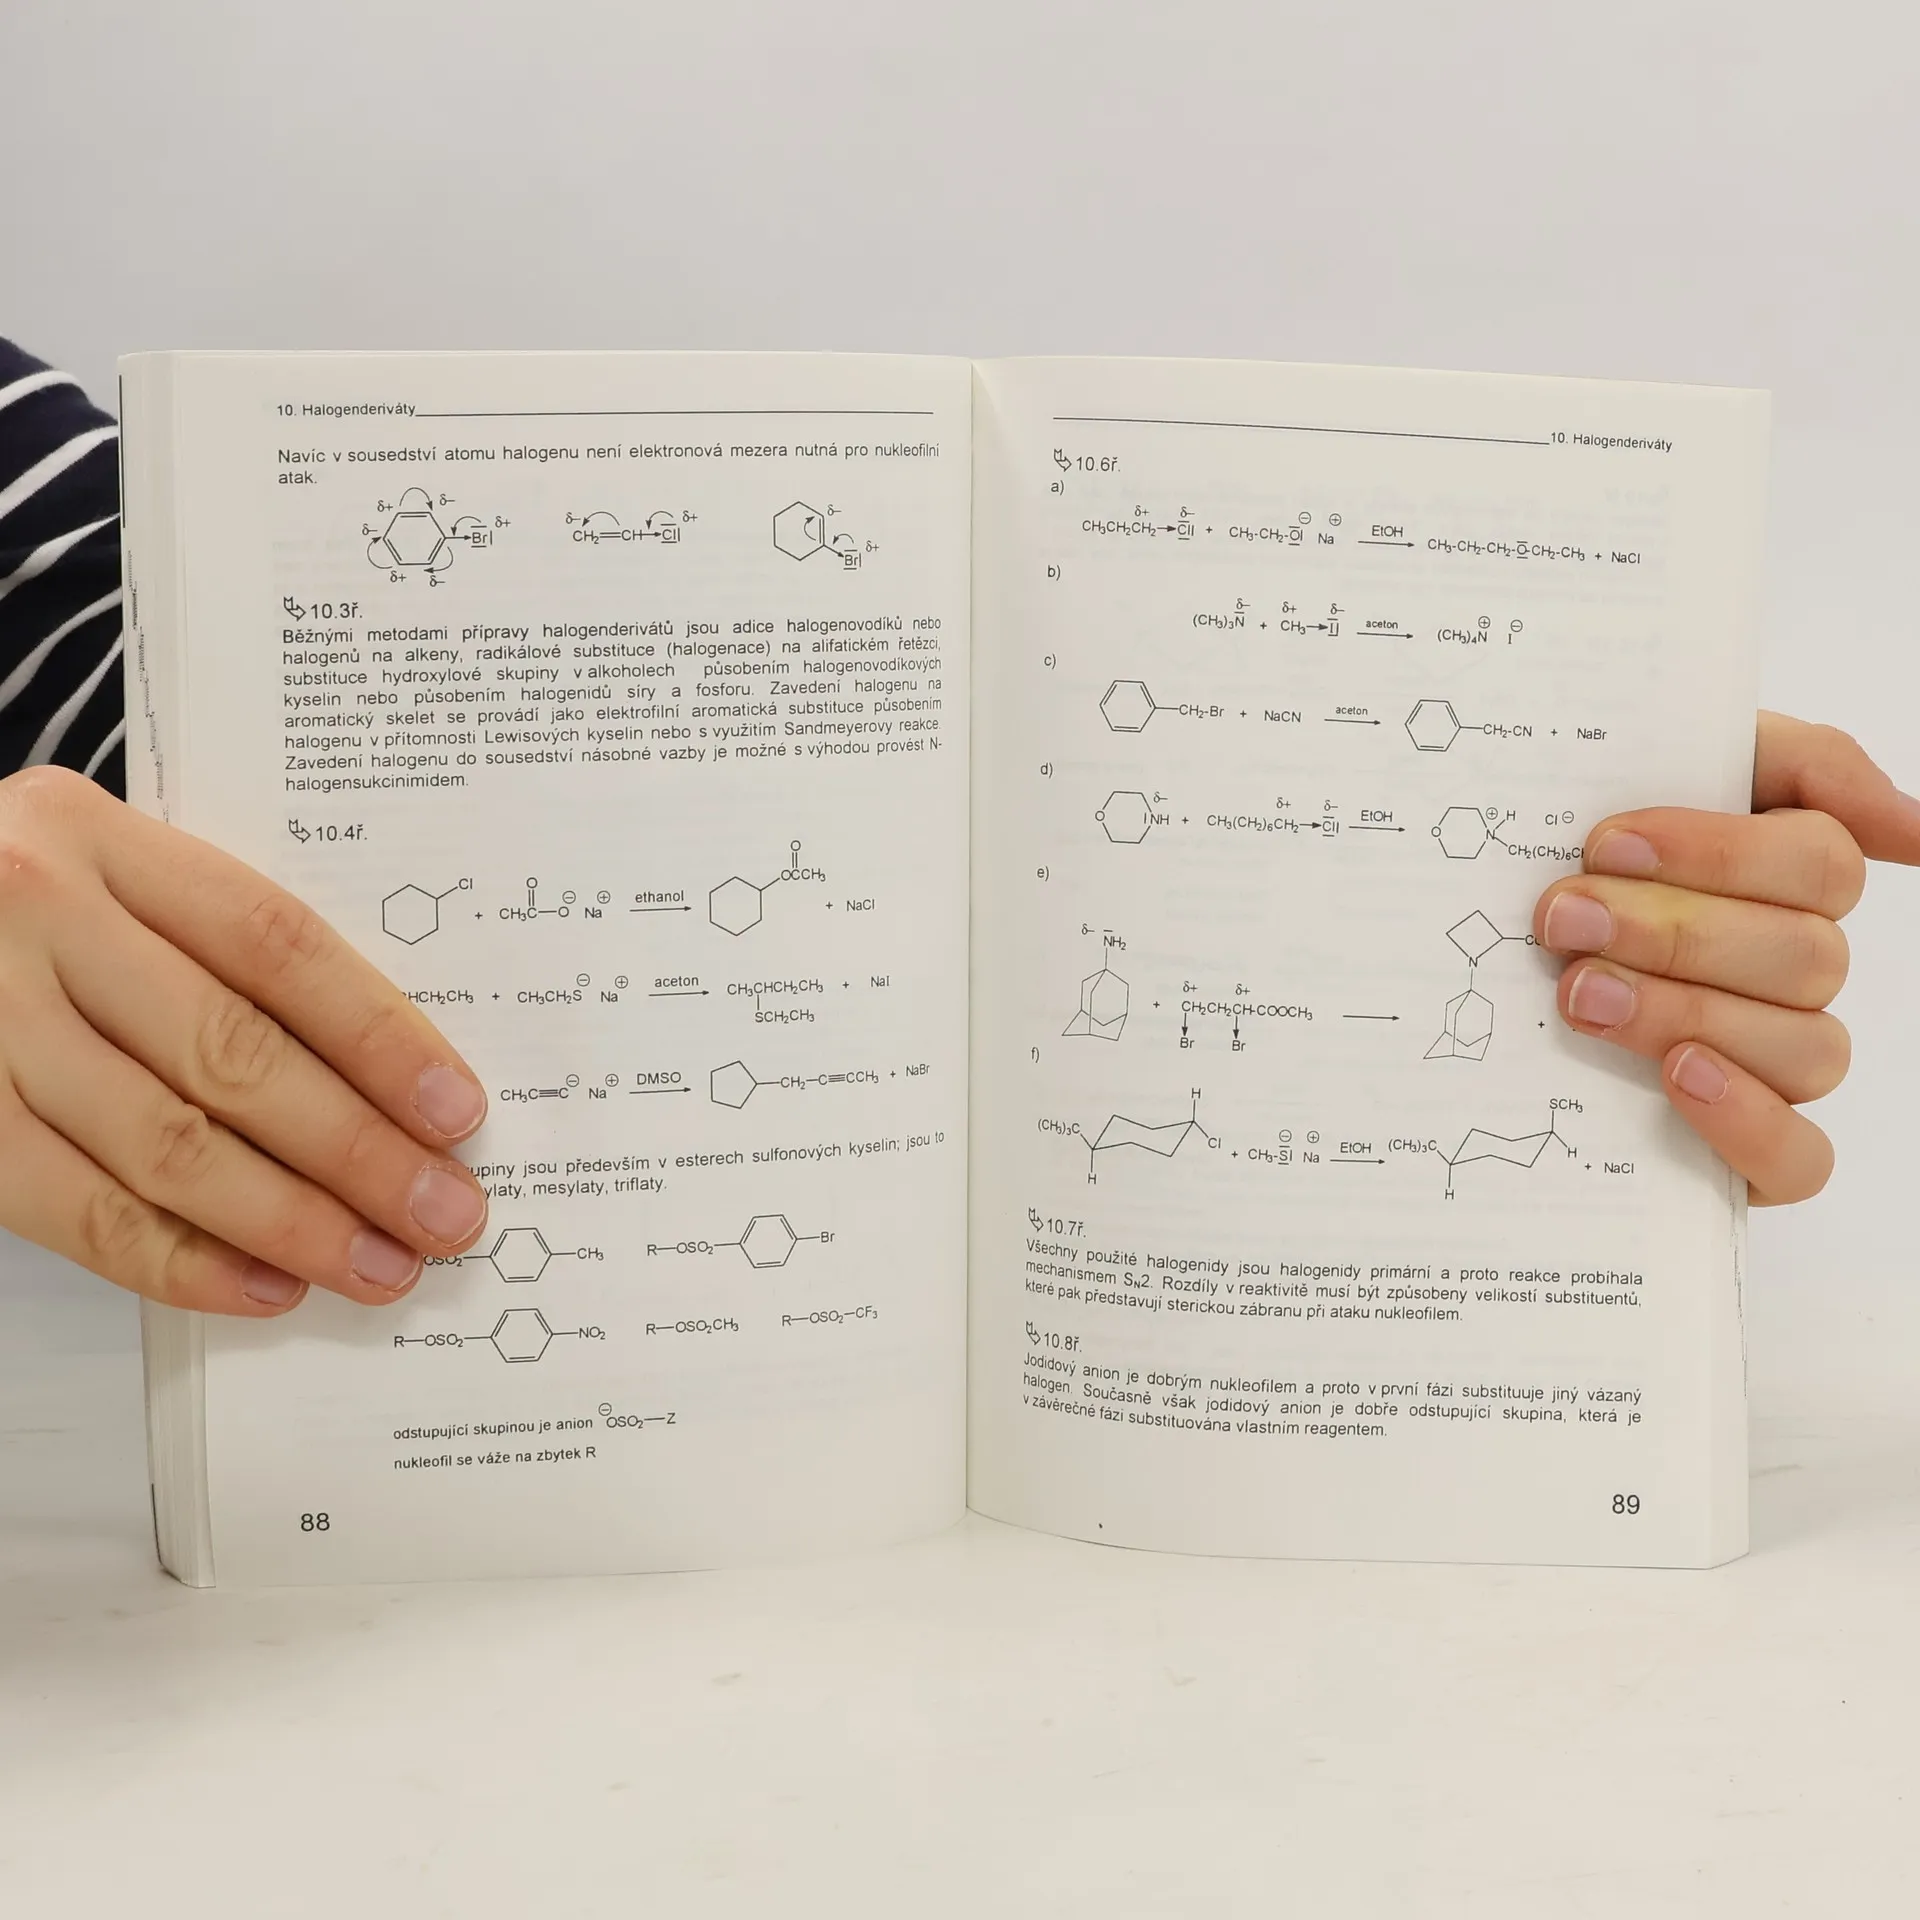 10. Halogenderiváty
Navíc v sousedství atomu halogenu není elektronová mezera nutná pro nukleofilní
atak.
δ+ δ– δ– δ+ Br δ+ δ–
δ– CH₂=CH Cl δ+
δ– Br δ+
10.3ř.
Běžnými metodami přípravy halogenderivátů jsou adice halogenovodíků nebo
halogenů na alkeny, radikálové substituce (halogenace) na alifatickém řetězci,
substituce hydroxylové skupiny v alkoholech působením halogenovodíkových
kyselin nebo působením halogenidů síry a fosforu. Zavedení halogenu na
aromatický skelet se provádí jako elektrofilní aromatická substituce působením
halogenu v přítomnosti Lewisových kyselin nebo s využitím Sandmeyerovy reakce.
Zavedení halogenu do sousedství násobné vazby je možné s výhodou provést N-
halogensukcinimidem.
10.4ř.
Cl + CH₃C(O)–O⊖ Na⊕ ethanol OCCH₃ O + NaCl
HCH₂CH₃ + CH₃CH₂S⊖ Na⊕ aceton CH₃CHCH₂CH₃ + NaI
SCH₂CH₃
CH₃C≡C⊖ Na⊕ DMSO CH₂–C≡CCH₃ + NaBr
upiny jsou především v esterech sulfonových kyselin; jsou to
ylaty, mesylaty, triflaty.
OSO₂ CH₃ R–OSO₂ Br
R–OSO₂ NO₂ R–OSO₂CH₃ R–OSO₂–CF₃
odstupující skupinou je anion ⊖OSO₂–Z
nukleofil se váže na zbytek R
88
10. Halogenderiváty
10.6ř.
a)
δ+ δ– ⊖ ⊕
CH₃CH₂CH₂→Cl + CH₃-CH₂-O Na EtOH CH₃-CH₂-CH₂-O-CH₂-CH₃ + NaCl
b)
δ– δ+ δ– ⊕ ⊖
(CH₃)₃N + CH₃→I aceton (CH₃)₄N I
c)
CH₂-Br + NaCN aceton CH₂-CN + NaBr
d)
δ– δ+ δ– ⊕ H Cl⊖
O NH + CH₃(CH₂)₆CH₂→Cl EtOH O N
CH₂(CH₂)₆C
e)
δ– NH₂
N
δ+ δ+
+ CH₂CH₂CH-COOCH₃ +
Br Br
f)
H SCH₃
(CH₃)₃C Cl + CH₃-S⊖ Na⊕ EtOH (CH₃)₃C H + NaCl
H H
10.7ř.
Všechny použité halogenidy jsou halogenidy primární a proto reakce probíhala
mechanismem Sɴ2. Rozdíly v reaktivitě musí být způsobeny velikostí substituentů,
které pak představují sterickou zábranu při ataku nukleofilem.
10.8ř.
Jodidový anion je dobrým nukleofilem a proto v první fázi substituuje jiný vázaný
halogen. Současně však jodidový anion je dobře odstupující skupina, která je
v závěrečné fázi substituována vlastním reagentem.
89